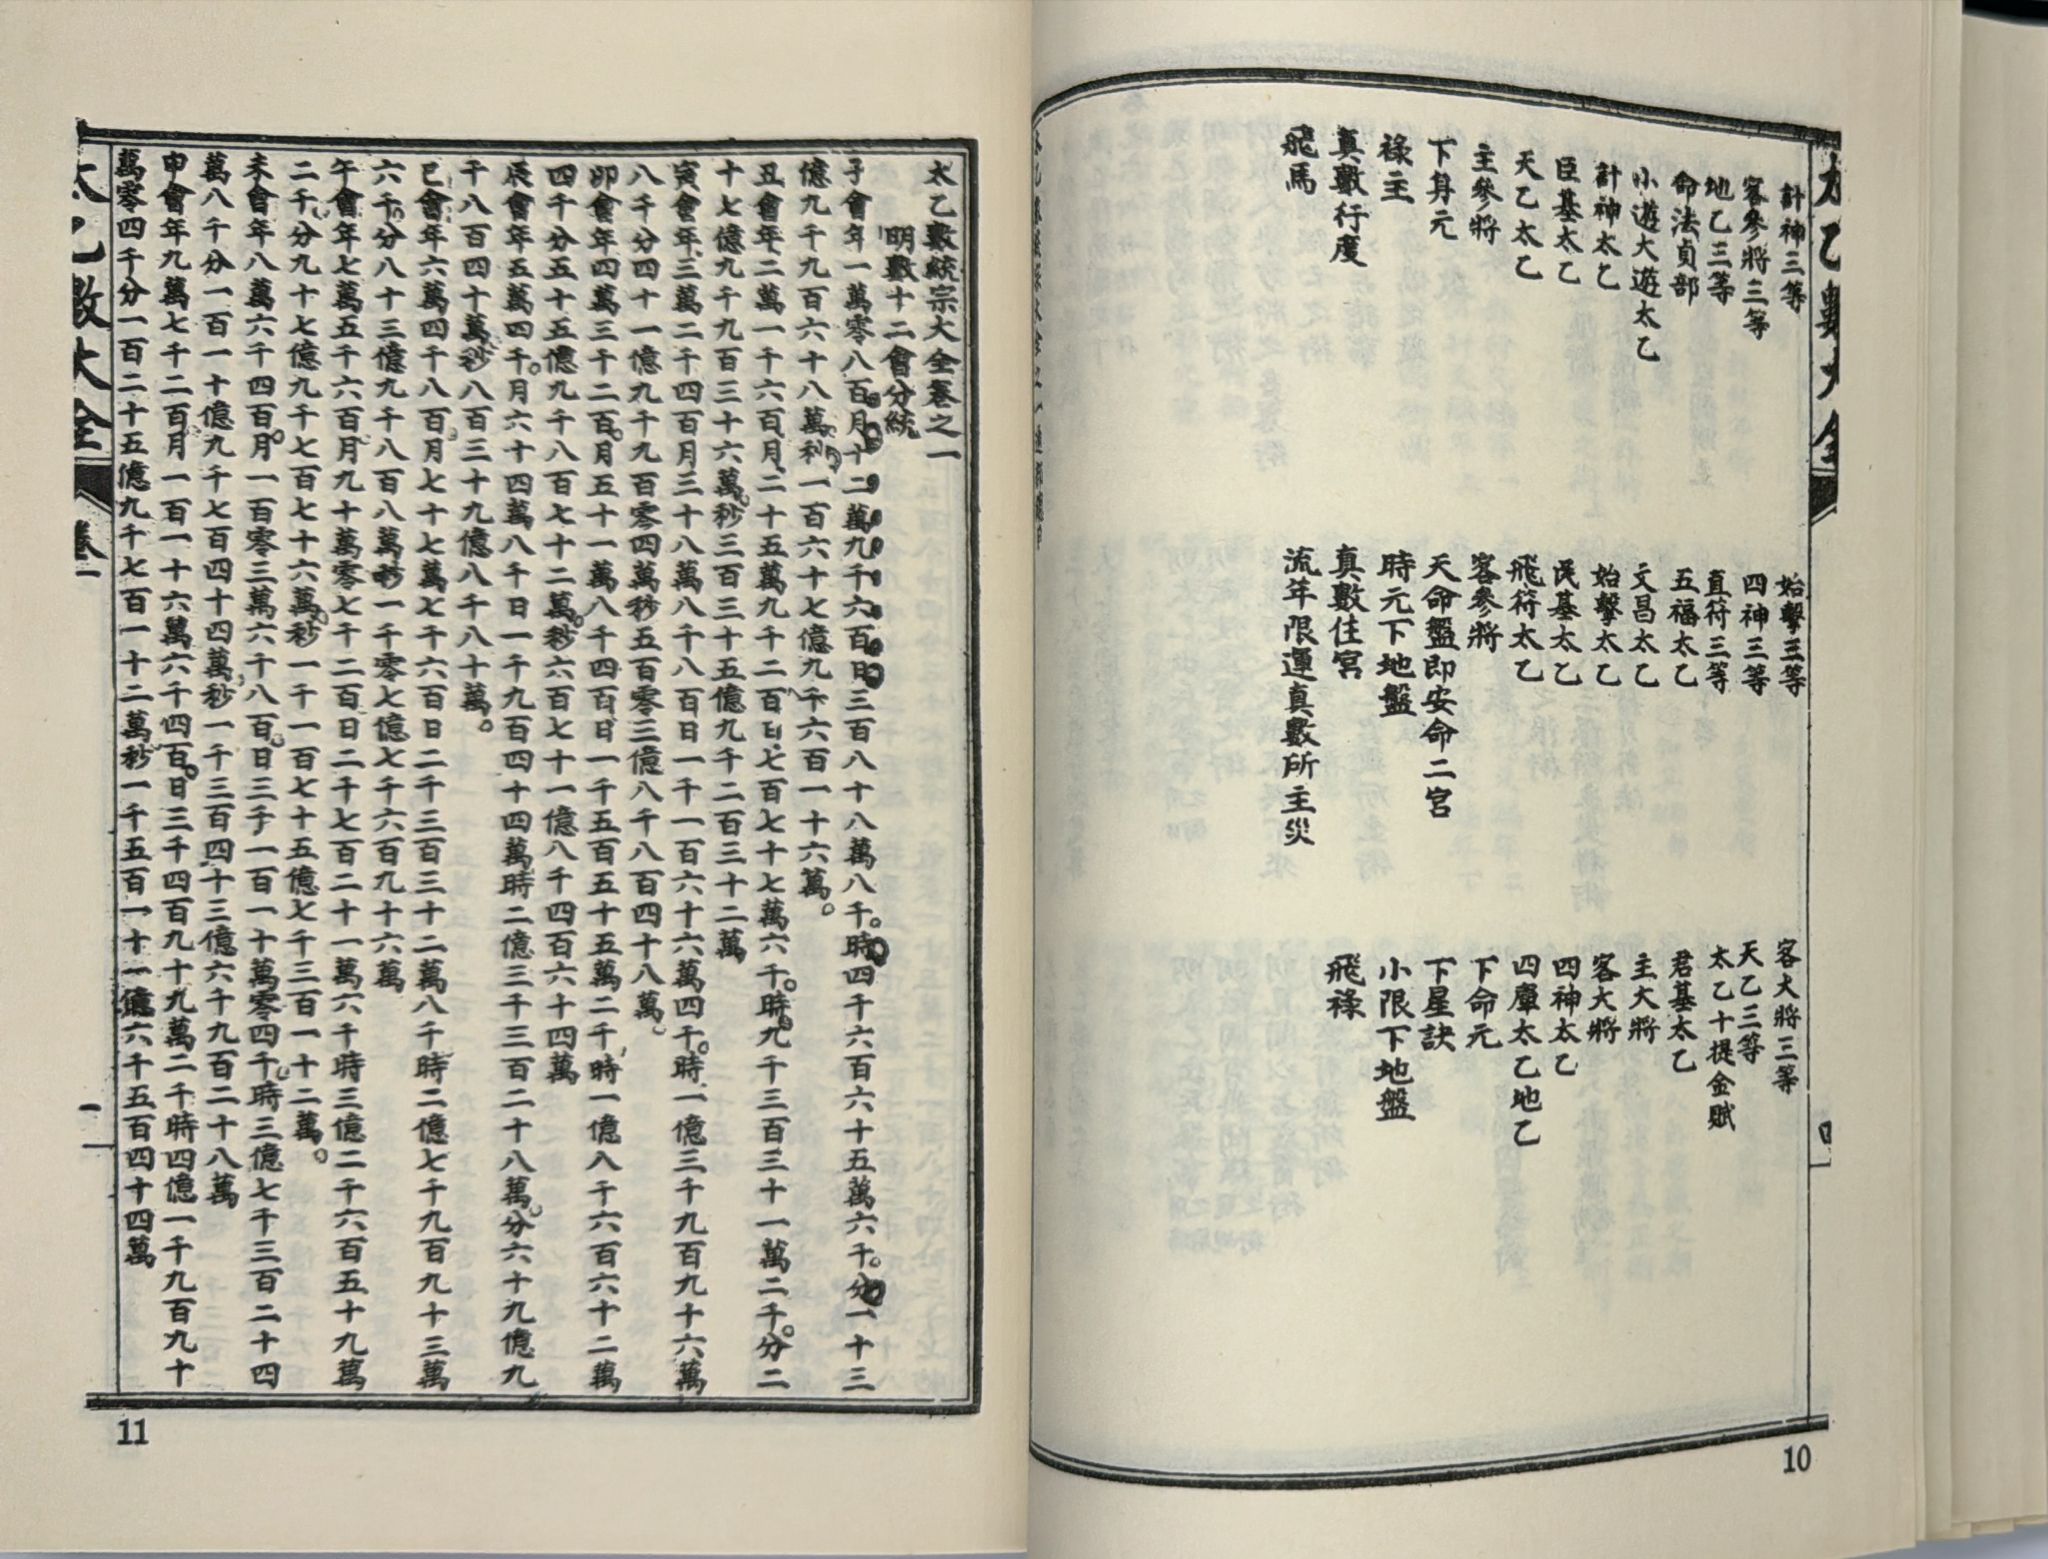 太乙數大全
計神三等
始擊三等
客大將三等
客參將三等
四神三等
天乙三等
地乙三等
直符三等
太乙十提金賦
命法貞部
五福太乙
君基太乙
小遊大遊太乙
文昌太乙
主大將
計神太乙
始擊太乙
客大將
臣基太乙
民基太乙
四神太乙
天乙太乙
飛符太乙
四庫太乙地乙
主參將
客參將
下命元
下身元
天命盤即安命二宮
下星訣
祿主
時元下地盤
小限下地盤
真數行度
真數住宮
飛祿
飛馬
流年限運真數所主災
四
10
太乙數統宗大全卷之一
明數十二會分統
子會年一萬零八百月十二萬九千六百日三百八十八萬八千。時四千六百六十五萬六千。分一十三
億九千九百六十八萬秒一百六十七億九千六百一十六萬。
丑會年二萬一千六百月二十五萬九千二百日七百七十七萬六千。時九千三百三十一萬二千。分二
十七億九千九百三十六萬。秒三百三十五億九千二百三十二萬
寅會年三萬二千四百月三十八萬八千八百日一千一百六十六萬四千。時一億三千九百九十六萬
八千分四十一億九千九百零四萬秒五百零三億八千八百四十八萬。
卯會年四萬三千二百。月五十一萬八千四百日一千五百五十五萬二千時一億八千六百六十二萬
四千分五十五億九千八百七十二萬。秒六百七十一億八千四百六十四萬
辰會年五萬四千。月六十四萬八千日一千九百四十四萬時二億三千三百二十八萬。分六十九億九
千八百四十萬秒八百三十九億八千八十萬。
巳會年六萬四千八百月七十七萬七千六百日二千三百三十二萬八千時二億七千九百九十三萬
六千。分八十三億九千八百八萬秒一千零七億七千六百九十六萬
午會年七萬五千六百月九十萬零七千二百日二千七百二十一萬六千時三億二千六百五十九萬
二千。分九十七億九千七百七十六萬。秒一千一百七十五億七千三百一十二萬。
未會年八萬六千四百。月一百零三萬六千八百。日三千一百一十萬零四千。時三億七千三百二十四
萬八千分一百一十億九千七百四十四萬。秒一千三百四十三億六千九百二十八萬
申會年九萬七千二百月一百一十六萬六千四百。日三千四百九十九萬二千時四億一千九百九十
萬零四千分一百二十五億九千七百一十二萬秒一千五百一十一億六千五百四十四萬
太乙數大全
卷一
一
11